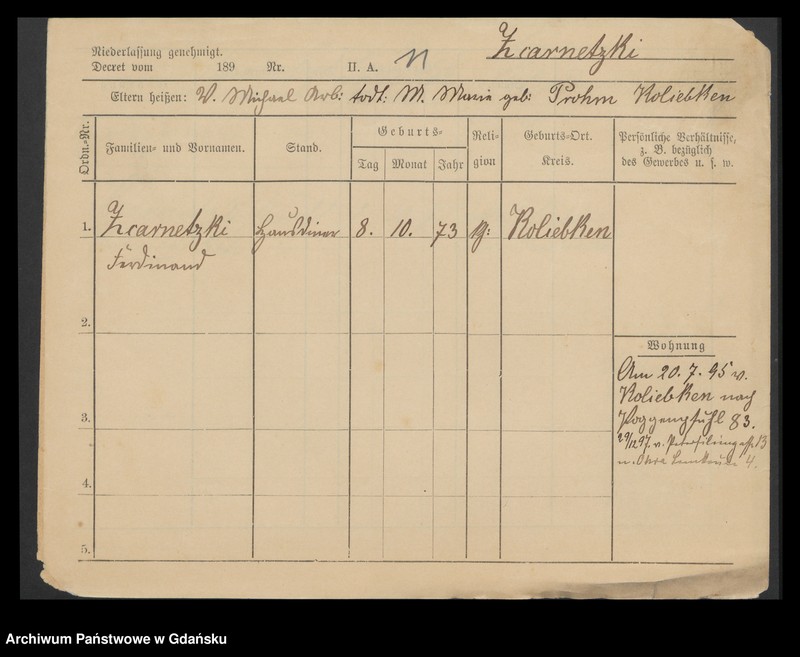 Zcarnetzki
Niederlassung genehmigt.
Decret vom 189 Nr. II. A. 11
Eltern heißen: V. Michael Arb: todt: M. Marie geb: Prohm Koliebken
Ordn.-Nr.
Familien- und Vornamen.
Stand.
Geburts-
Tag
Monat
Jahr
Reli-
gion
Geburts-Ort.
Kreis.
Persönliche Verhältnisse,
z. B. bezüglich
des Gewerbes u. s. w.
1. Zcarnetzki Hausdiener 8. 10. 73 Koliebken
Ferdinand
2.
Wohnung
Am 20. 7. 95 v.
Koliebken nach
3. Poggenpfuhl 83.
29/12 97. v. Petersiliengasse 13
n. Ohra 4.
4.
5.
Archiwum Państwowe w Gdańsku